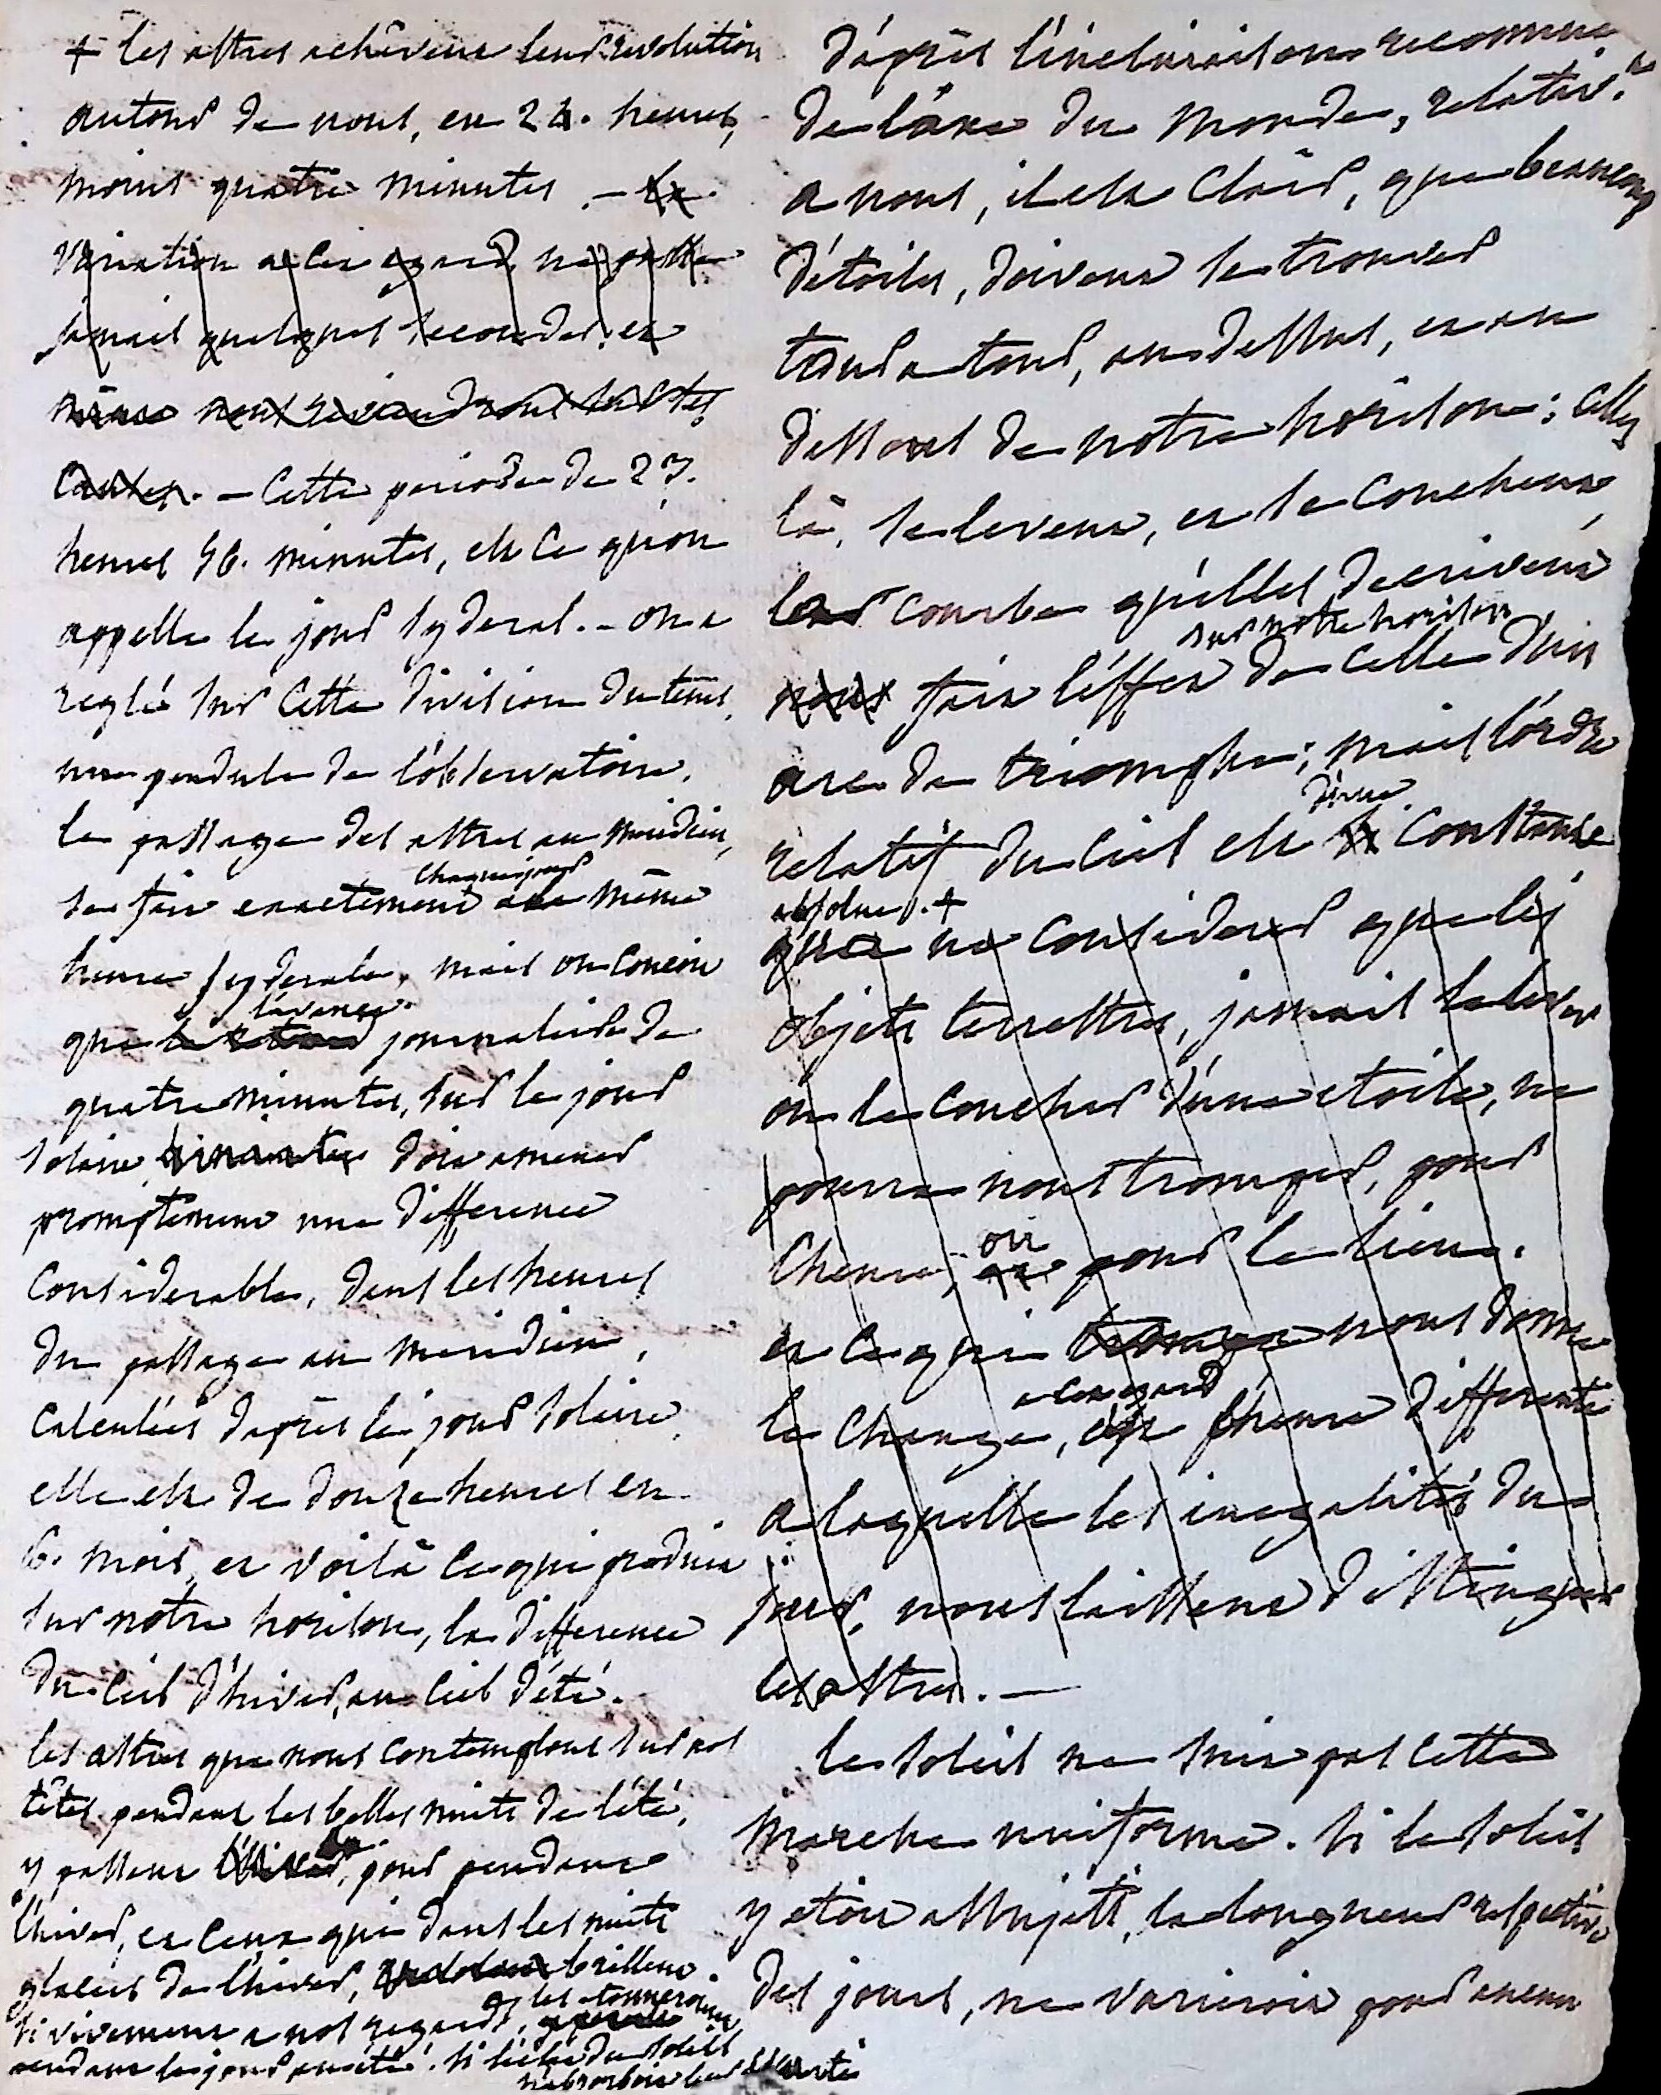 + les astres achêvent leur revolution
autour de nous, en 24. heures,
moins quatre minutes. – la
variation a cet egard, ne passe
jamais quelques secondes, et
même nous reviendrons sur ses
causes. – Cette periode de 23.
heures 56. minutes, est ce qu'on
appelle le jour syderal. – on a
reglé sur cette division du tems,
une pendule de l'observatoire.
le passage des astres au meridien,
chaque jour
se fait exactement a la même
heure syderale, mais on concoit
l'avance
que le retard journalier de
quatre minutes, sur le jour
solaire, doit amener
promptement une difference
considerable, dans les heures
du passage au meridien,
calculées d'après le jour solaire,
elle est de douze heures en
6. mois, et voilà ce qui produit
sur notre horison, la difference
du ciel d'hiver, au ciel d'été.
les astres que nous contemplons sur nos
têtes pendant les belles nuits de l'été,
y passent l'hiver, jour pendant
l'hiver, et ceux qui dans les nuits
glacées de l'hiver, brillent
si vivement a nos regards, les etonneroient
pendant les jours d'été. si l'éclat du soleil
n'absorboit leur clarté
d'après l'inclinaison reconnue
de l'axe du monde, relativ.t
a nous, il est clair, que beaucoup
d'étoiles, doivent se trouver
tour a tour, au dessus, et au
dessous de notre horison; celles
là, se levent, et se couchent,
leur courbe qu'elles decrivent
sur notre horison
nous fait l'effet de celle d'un
arc de triomphe; mais l'ordre
d'une
relatif du ciel est si constante
absolue. +
que ne considerer que les
objets terrestres, jamais le lever
ou le coucher d'une etoile, ne
pourra nous tromper, pour
ou
l'heure, pour le lieu.
et ce qui trompe nous donne
a cet egard
le change, c'est l'heure differente
a laquelle les inegalités du
jour, nous laissent distinguer
les astres. —
le soleil ne suit pas cette
marche uniforme. si le soleil
y etoit assujetti, la longueur respective
des jours, ne varieroit pour aucun